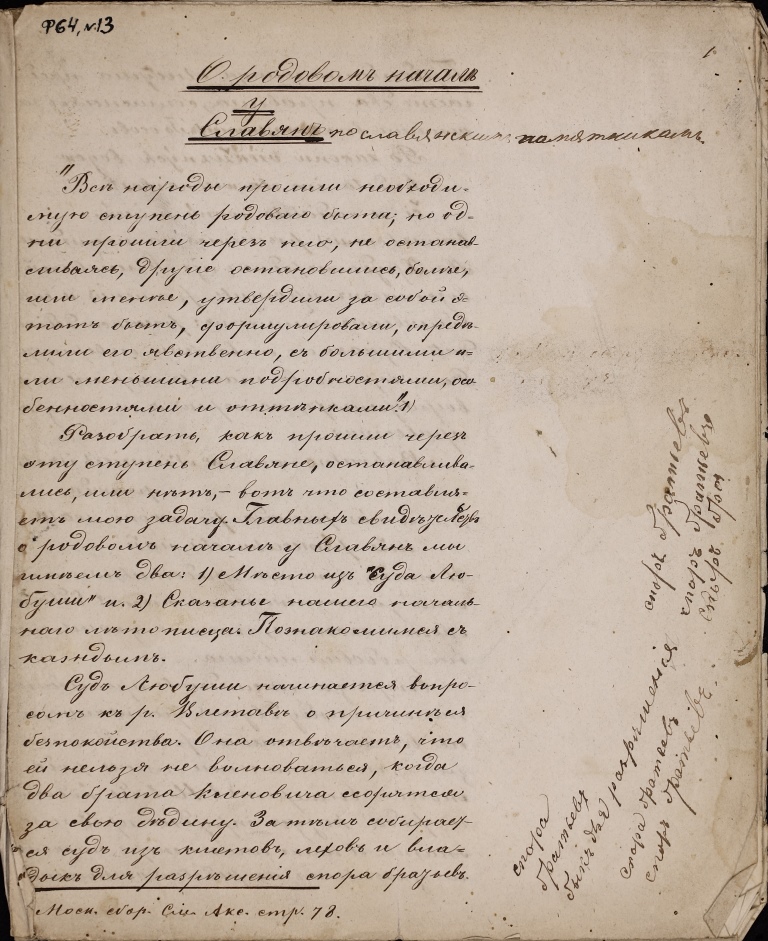 Ф64, №13
1
О родовомъ началѣ
у
Славянъ по славянскимъ памятникамъ.
"Всѣ народы прошли необходи-
мую ступень родоваго быта; но од-
ни прошли черезъ него, не останав-
ливаясь, другіе остановились, болѣе,
или менѣе, утвердили за собой э-
тотъ бытъ, формулировали, опредѣ-
лили его явственно, съ большими и-
ли меньшими подробностями, осо
бенностями и оттѣнками". 1)
Разобрать, какъ прошли черезъ
эту ступень Славяне, останавлива-
лись, или нѣтъ, – вотъ что составля-
етъ мою задачу. Главныхъ свидѣтельствъ
о родовомъ началѣ у Славянъ мы
имѣемъ два: 1) Мѣсто изъ "Суда Лю-
буши" и 2) Сказанье нашего началь-
наго лѣтописца. Познакомимся съ
каждымъ.
Судъ Любуши начинается вопро-
сомъ къ р. Влетавѣ о причинѣ ея
безпокойства. Она отвѣчаетъ, что
ей нельзя не волноваться, когда
два брата Кленовича ссорятся
за свою дѣдину. Затѣмъ собирает-
ся судъ изъ кметовъ, леховъ и вла-
дыкъ для разрѣшенія спора братьевъ.
Моск. сбор. См. Акс. стр. 78.
споръ братьевъ
споръ братьевъ
спора
братьевъ
для разрѣшенія
спора братьевъ
споръ братьевъ